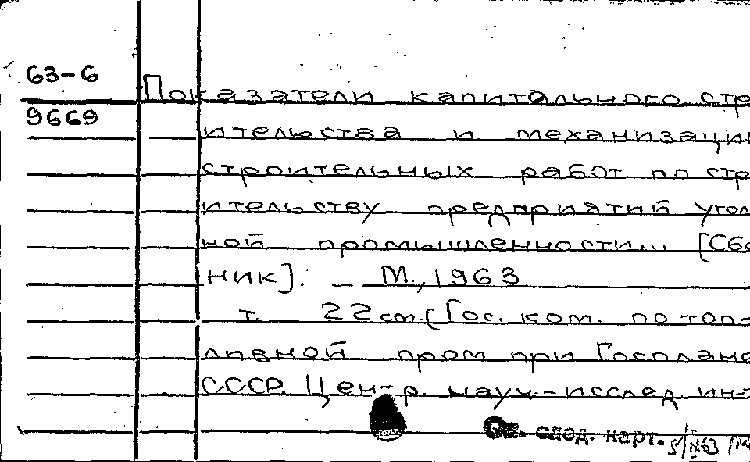 63-6
Показатели капитального стро
9669
ительства и механизации
строительных работ по стро
ительству предприятий уголь
ной промышленности... [Сбо
ник]. – М., 1963
т. 22 см (Гос. ком. по топ-
ливной пром при Госплане
СССР. Центр. науч.-исслед. ин-т
См. след. карт.